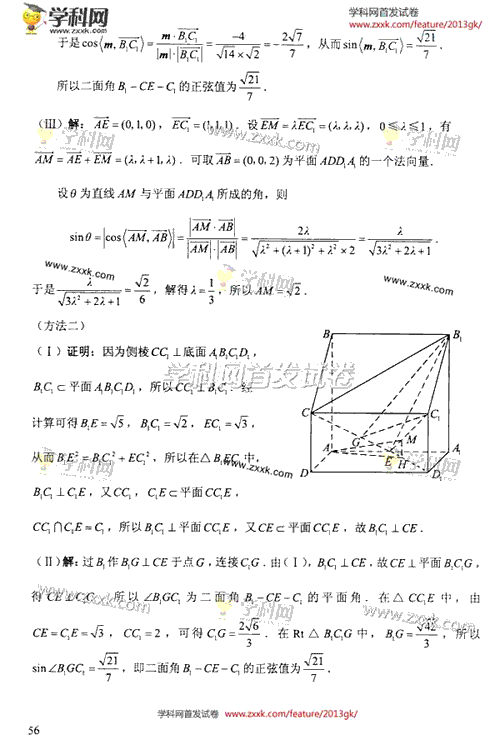 学科网 学科网首发试卷
www.zxxk.com www.zxxk.com/feature/2013gk/
于是 cos⟨m, B₁C₁⟩ = m·B₁C₁ / (|m|·|B₁C₁|) = -4 / (√14×√2) = -2√7/7，从而 sin⟨m, B₁C₁⟩ = √21/7．
所以二面角 B₁－CE－C₁ 的正弦值为 √21/7．
(Ⅲ) 解：AE = (0,1,0)，EC₁ = (1,1,1)．设 EM = λEC₁ = (λ,λ,λ)，0≤λ≤1，有
AM = AE + EM = (λ,λ+1,λ)．可取 AB = (0,0,2) 为平面 ADD₁A₁ 的一个法向量．
设 θ 为直线 AM 与平面 ADD₁A₁ 所成的角，则
sinθ = |cos⟨AM, AB⟩| = |AM·AB| / (|AM|·|AB|) = 2λ / (√(λ²+(λ+1)²+λ²)×2) = λ / √(3λ²+2λ+1)．
www.zxxk.com
于是 λ / √(3λ²+2λ+1) = √2/6，解得 λ = 1/3，所以 AM = √2．
(方法二)
(Ⅰ) 证明：因为侧棱 CC₁⊥底面 A₁B₁C₁D₁，
学科网首发试卷
B₁C₁⊂平面 A₁B₁C₁D₁，所以 CC₁⊥B₁C₁．经
计算可得 B₁E = √5，B₁C₁ = √2，EC₁ = √3，
www.zxxk.com
从而 B₁E² = B₁C₁² + EC₁²，所以在△B₁EC₁中，
B₁C₁⊥C₁E，又 CC₁，C₁E⊂平面 CC₁E，
CC₁∩C₁E = C₁，所以 B₁C₁⊥平面 CC₁E，又 CE⊂平面 CC₁E，故 B₁C₁⊥CE．
B B₁
C C₁
G M
A A₁
E H
D D₁
(Ⅱ) 解：过 B₁ 作 B₁G⊥CE 于点 G，连接 C₁G．由 (Ⅰ)，B₁C₁⊥CE，故 CE⊥平面 B₁C₁G，
得 CE⊥C₁G．所以 ∠B₁GC₁ 为二面角 B₁－CE－C₁ 的平面角．在△CC₁E 中，由
学科网
www.zxxk.com
CE = C₁E = √3，CC₁ = 2，可得 C₁G = 2√6/3．在 Rt△B₁C₁G 中，B₁G = √42/3，所以
sin∠B₁GC₁ = √21/7，即二面角 B₁－CE－C₁ 的正弦值为 √21/7．
56
学科网首发试卷 www.zxxk.com/feature/2013gk/